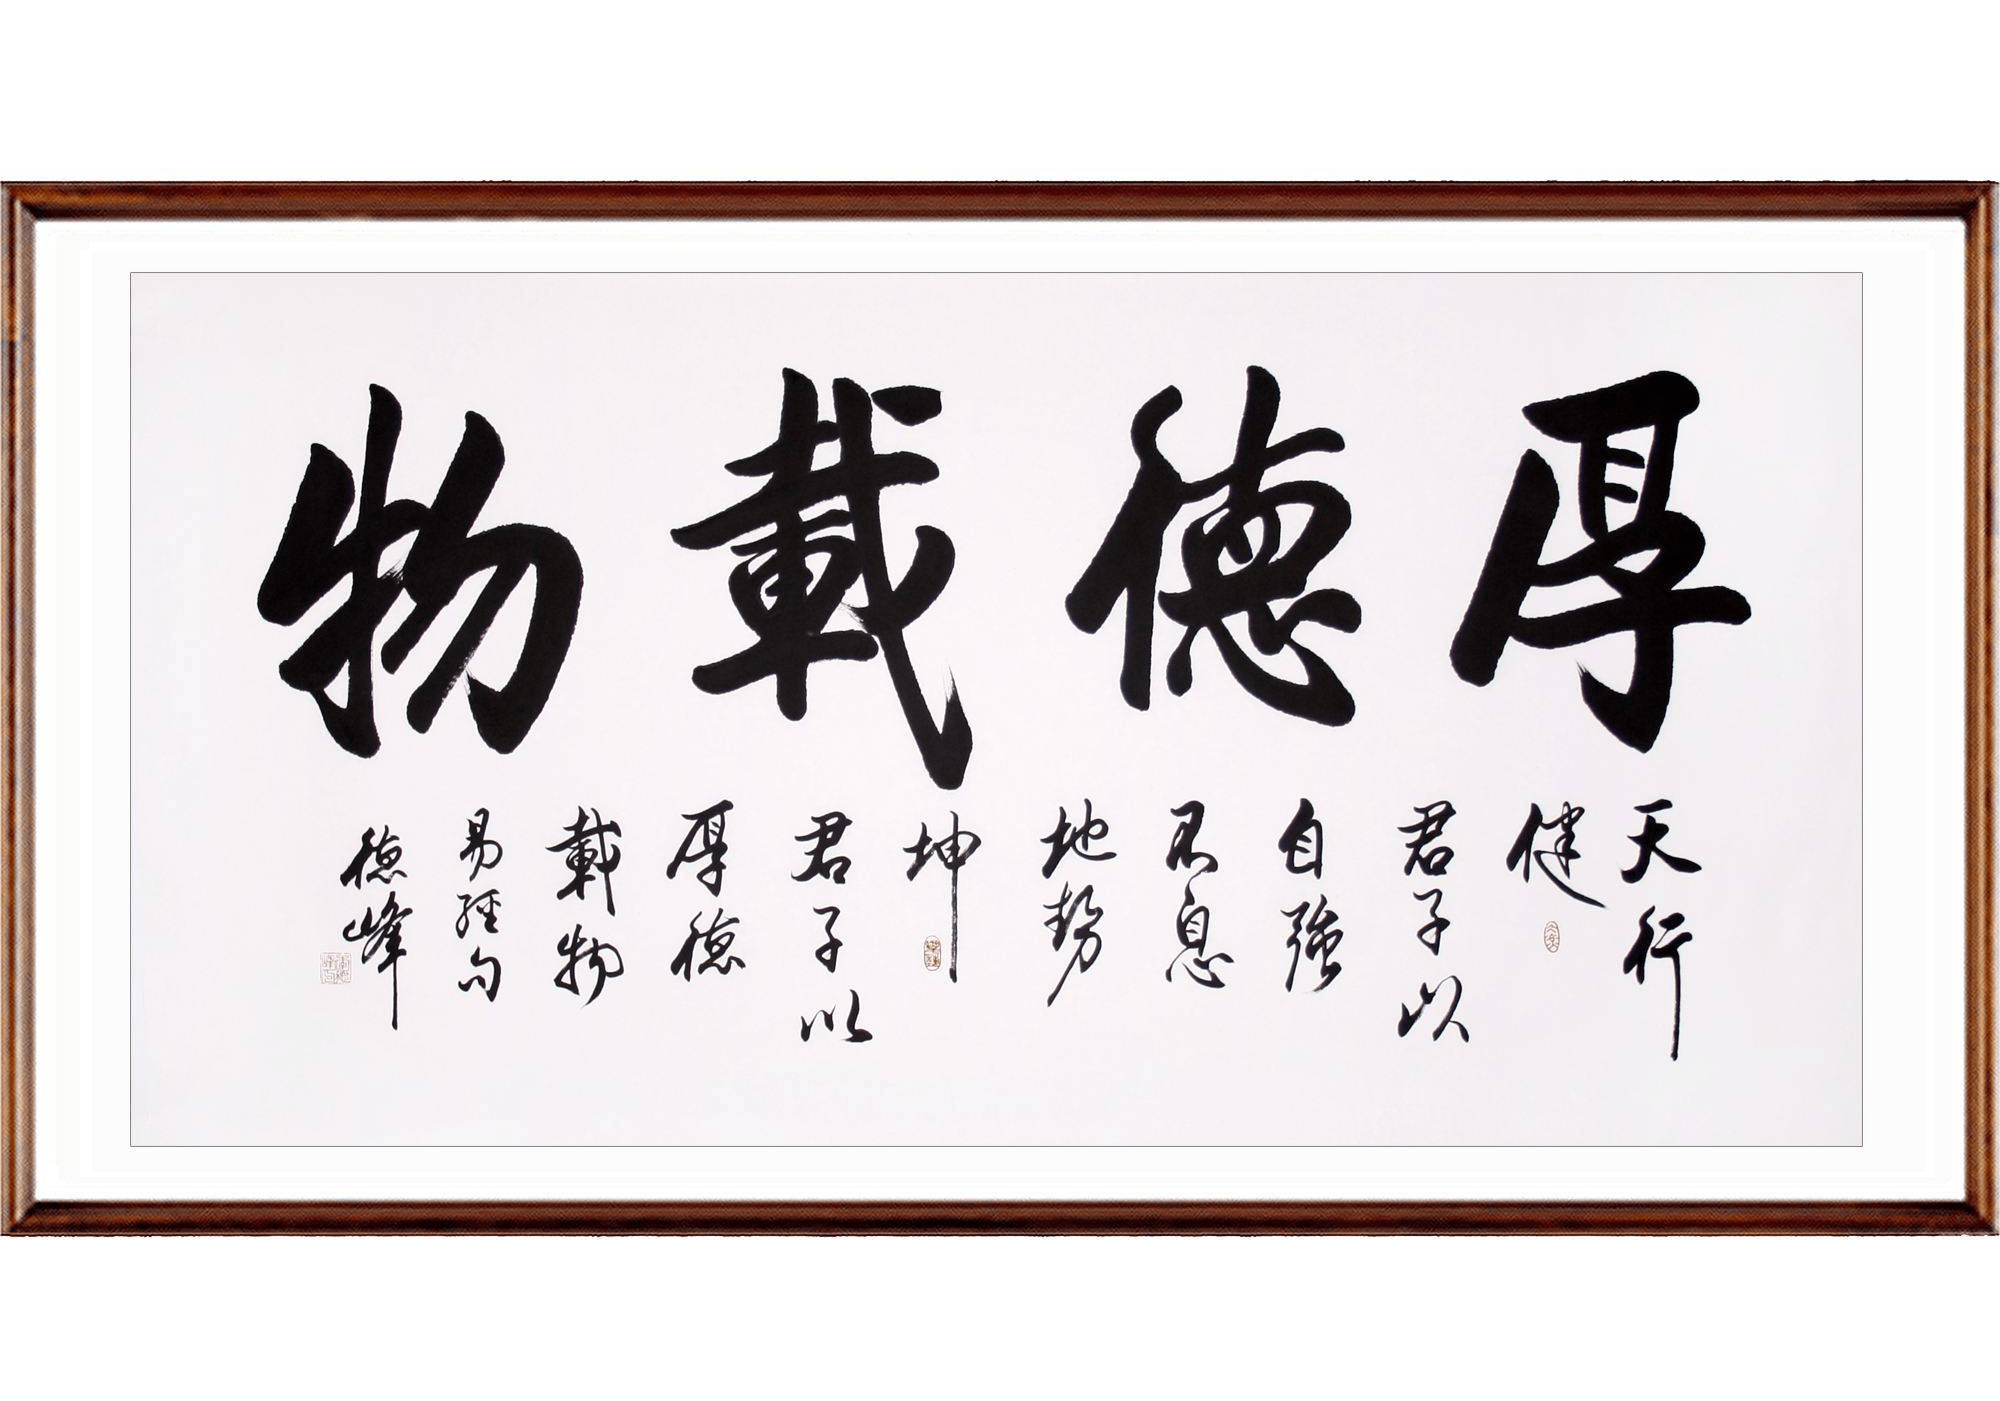 厚德載物
天行
健
君子以
自強
不息
地勢
坤
君子以
厚德
載物
易經句
德峰